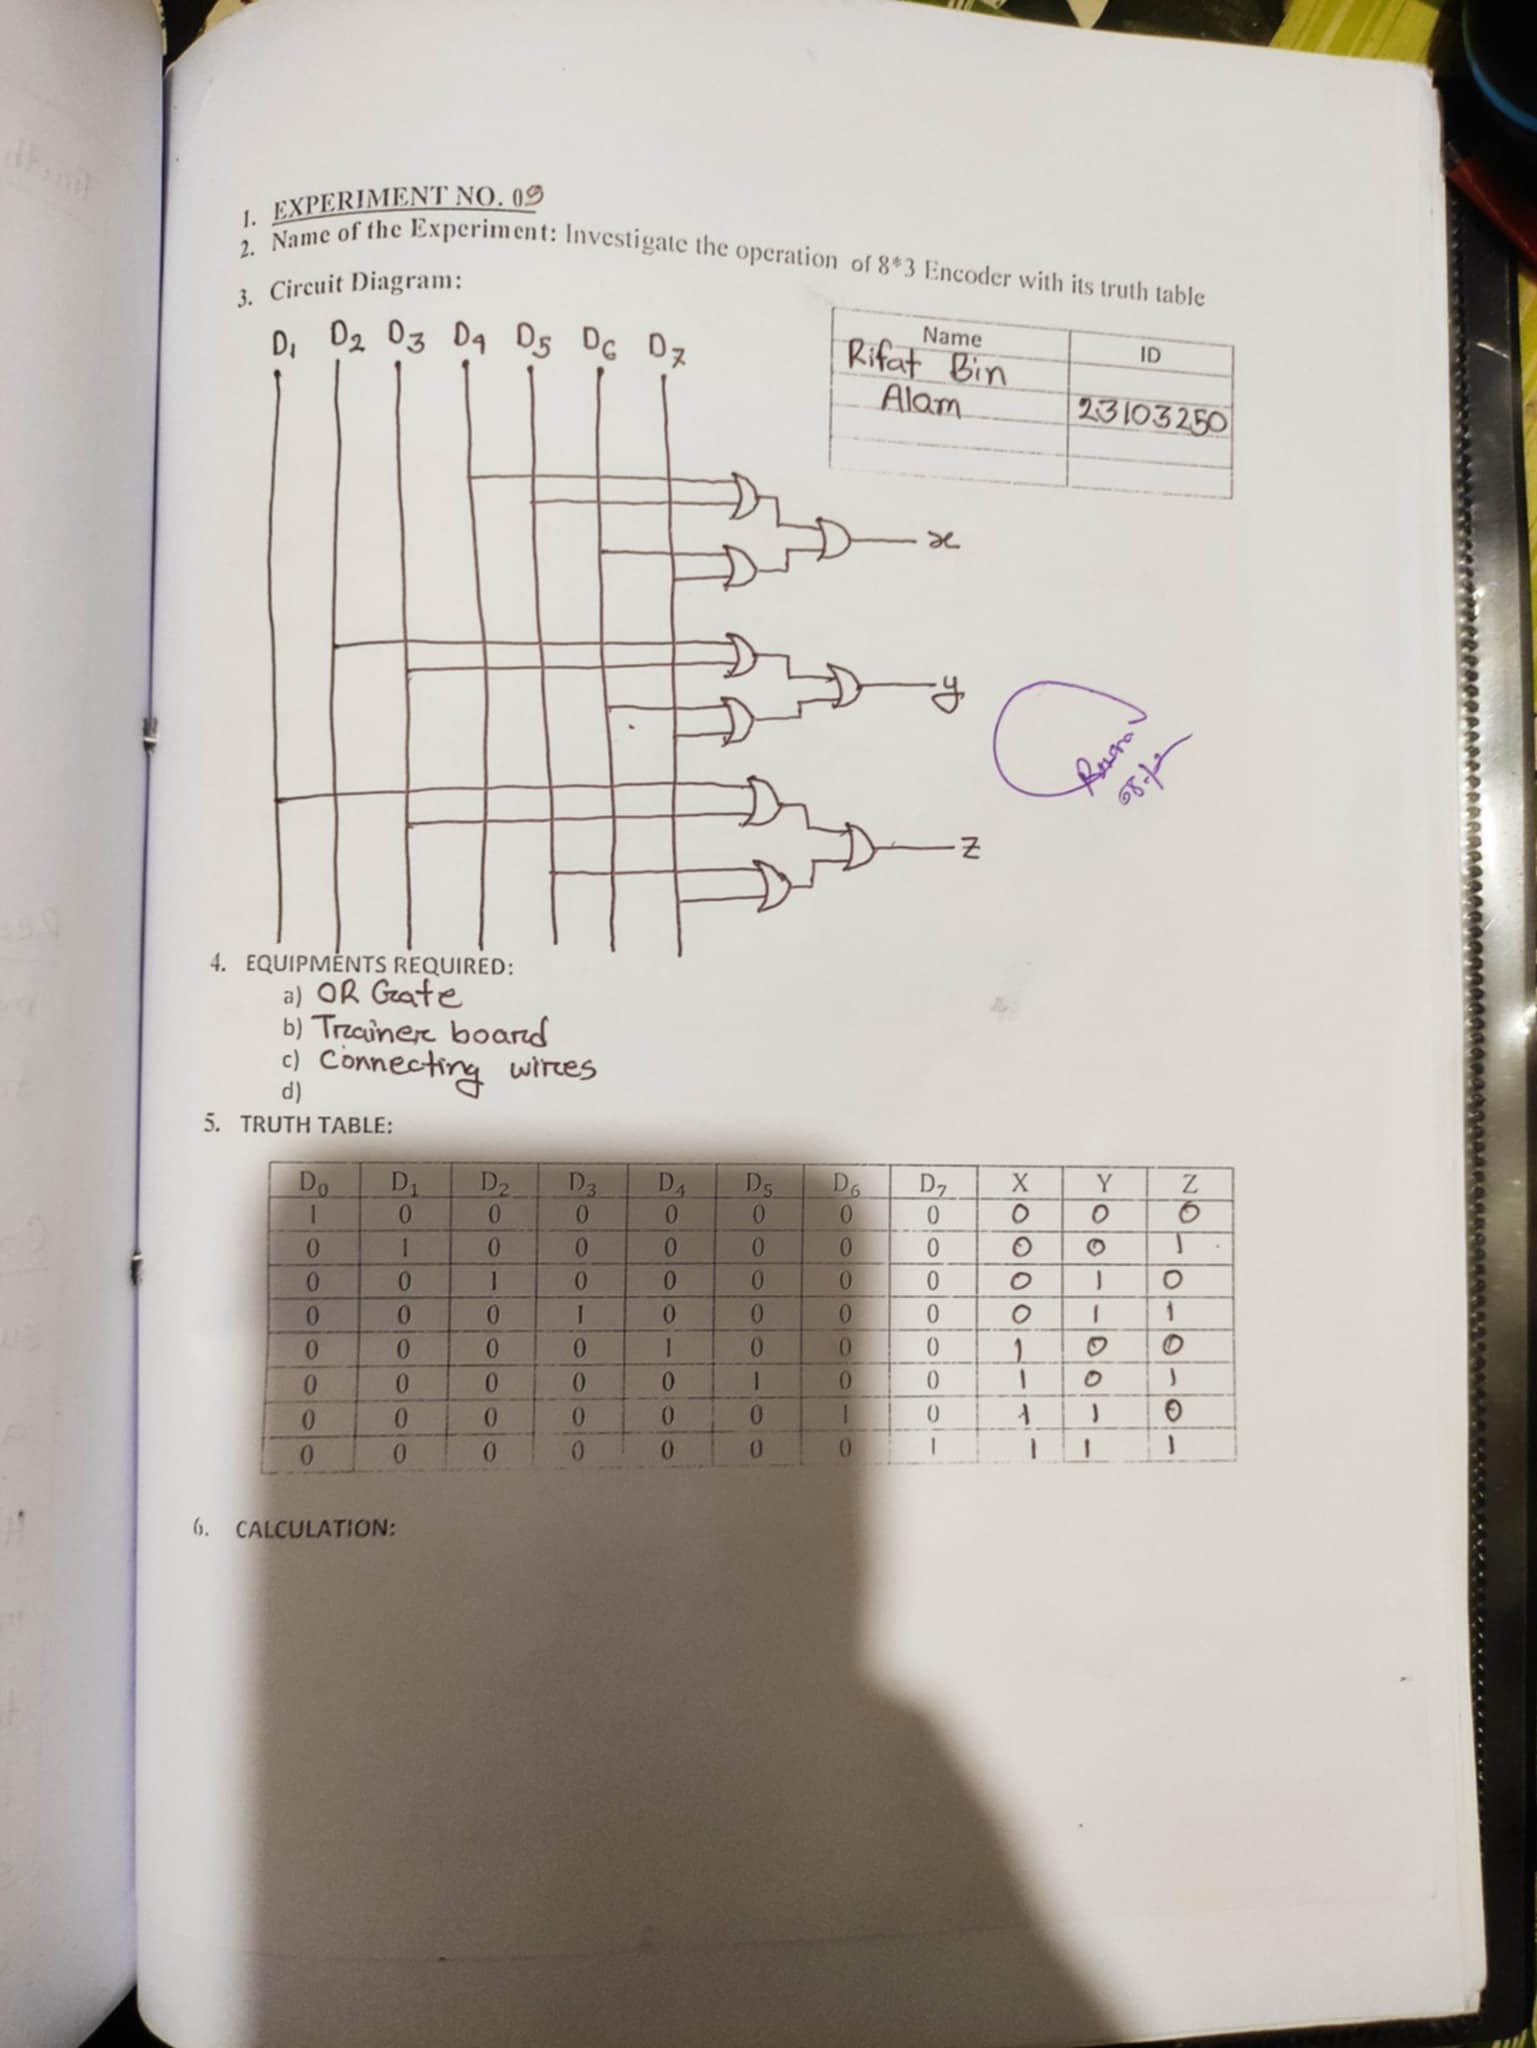 1. EXPERIMENT NO. 09
2. Name of the Experiment: Investigate the operation of 8*3 Encoder with its truth table
3. Circuit Diagram:
D1 D2 D3 D4 D5 D6 D7
Name ID
Rifat Bin
Alam 23103250
x
y
z
4. EQUIPMENTS REQUIRED:
a) OR Gate
b) Trainer board
c) Connecting wires
d)
5. TRUTH TABLE:
D0 D1 D2 D3 D4 D5 D6 D7 X Y Z
1 0 0 0 0 0 0 0 0 0 0
0 1 0 0 0 0 0 0 0 0 1
0 0 1 0 0 0 0 0 0 1 0
0 0 0 1 0 0 0 0 0 1 1
0 0 0 0 1 0 0 0 1 0 0
0 0 0 0 0 1 0 0 1 0 1
0 0 0 0 0 0 1 0 1 1 0
0 0 0 0 0 0 0 1 1 1 1
6. CALCULATION: